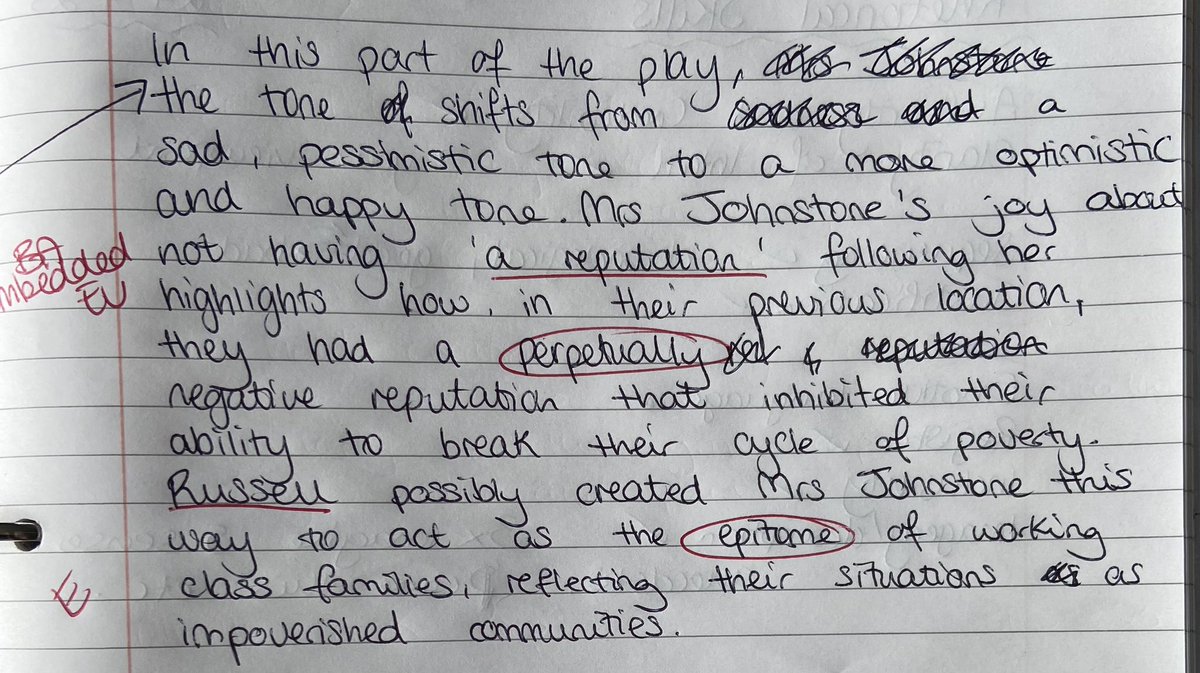 In this part of the play,
the tone shifts from a
sad, pessimistic tone to a more optimistic
and happy tone. Mrs Johnstone's joy about
not having 'a reputation' following her
highlights how, in their previous location,
they had a perpetually
negative reputation that inhibited their
ability to break their cycle of poverty.
Russell possibly created Mrs Johnstone this
way to act as the epitome of working
class families, reflecting their situations as
impoverished communities.
embedded